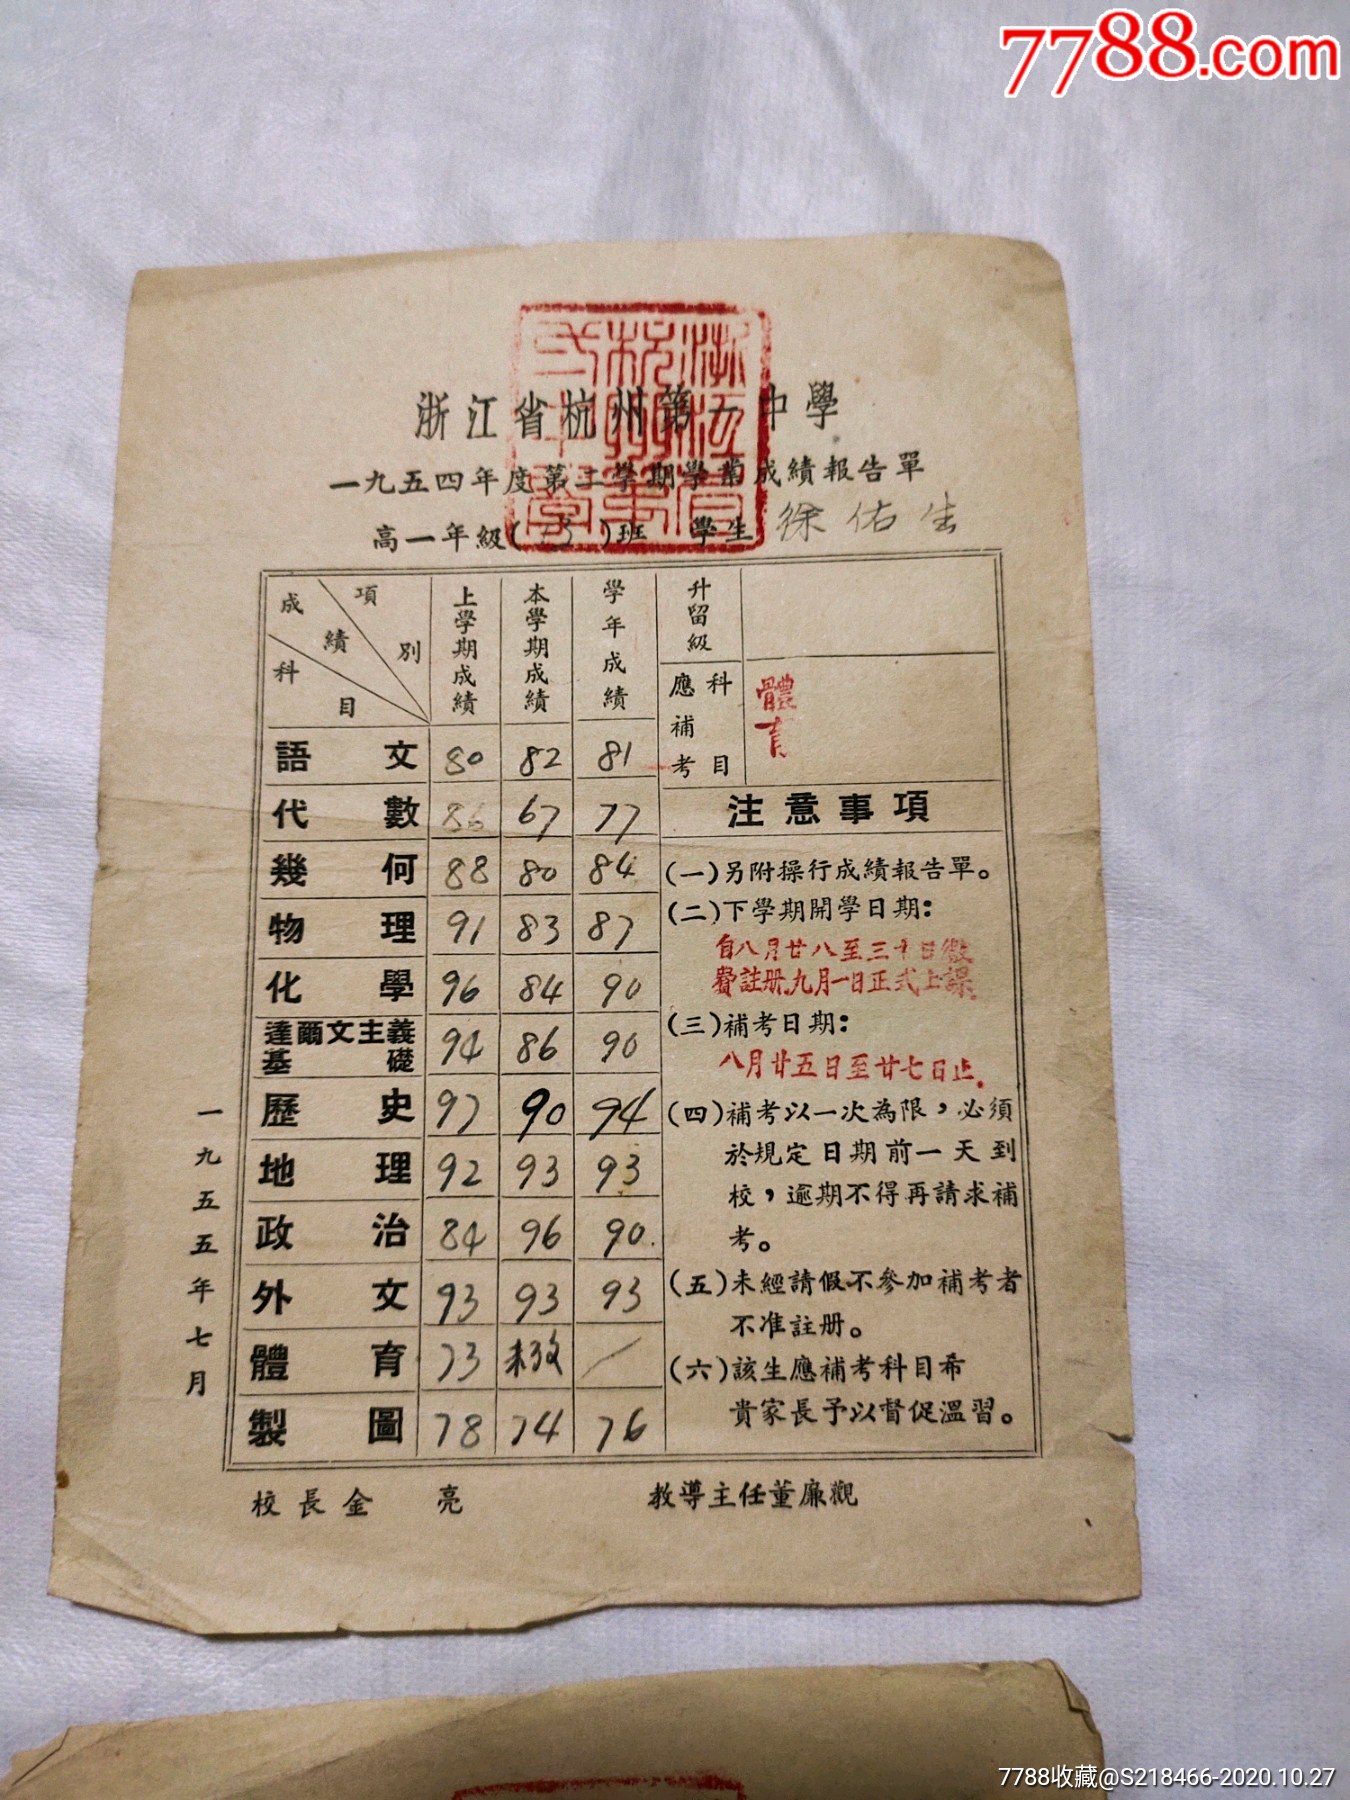 7788.com
浙江省杭州第一中學
一九五四年度第二學期學業成績報告單
高一年級( )班 學生 徐佑生
成績 項別 科目 上學期成績 本學期成績 學年成績
語文 80 82 81
代數 86 67 77
幾何 88 80 84
物理 91 83 87
化學 96 84 90
達爾文主義基礎 94 86 90
歷史 97 90 94
地理 92 93 93
政治 84 96 90.
外文 93 93 93
體育 73 未攷 /
製圖 78 74 76
升留級
應補考科目 體育
注意事項
(一)另附操行成績報告單。
(二)下學期開學日期:
自八月廿八至三十日繳
費註册.九月一日正式上課.
(三)補考日期:
八月廿五日至廿七日止.
(四)補考以一次為限,必須
於規定日期前一天到
校,逾期不得再請求補
考。
(五)未經請假不參加補考者
不准註册。
(六)該生應補考科目希
貴家長予以督促溫習。
一九五五年七月
校長金 亮 教導主任董廉觀
7788收藏@S218466-2020.10.27